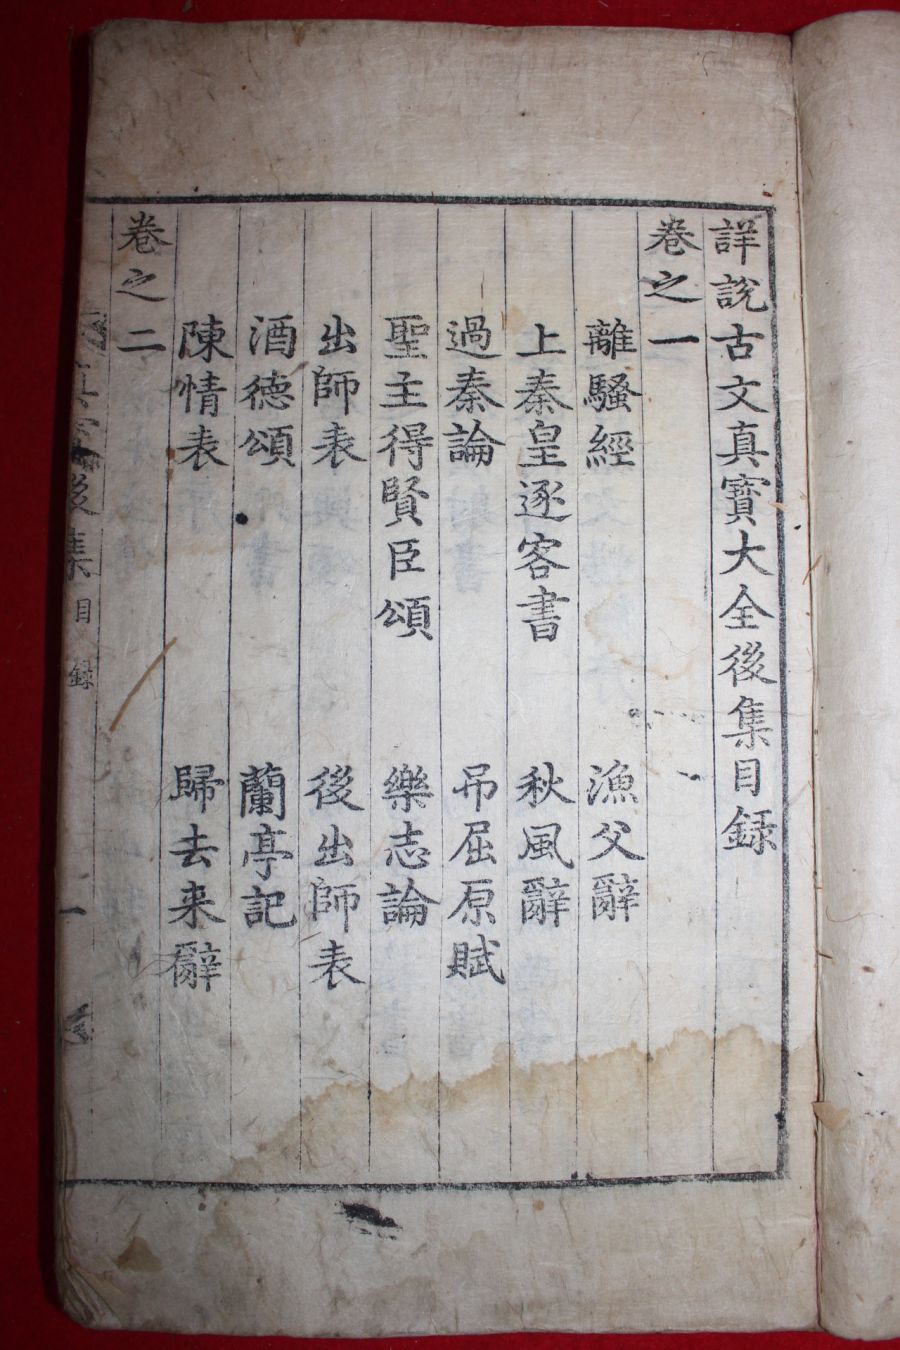 詳說古文真寶大全後集目録
卷之一
離騷經 漁父辭
上秦皇逐客書 秋風辭
過秦論 吊屈原賦
聖主得賢臣頌 樂志論
出師表 後出師表
酒德頌 蘭亭記
陳情表 歸去来辭
卷之二
後集 目録 一